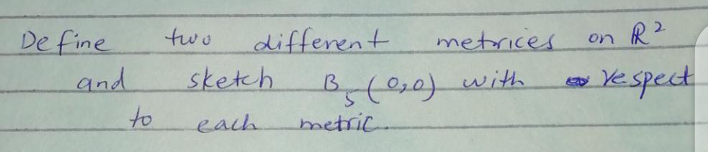 Define two different metrices on R²
and sketch B₅(0,0) with respect
to each metric.